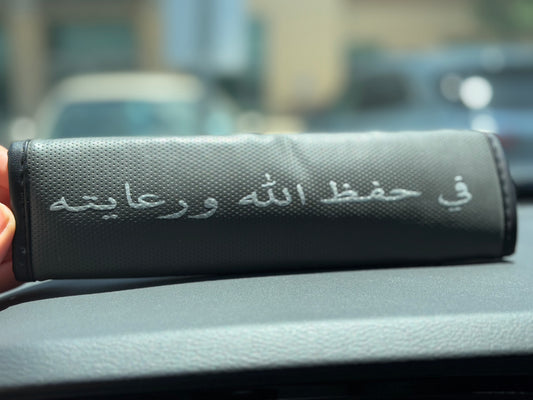 في حفظ الله ورعايته